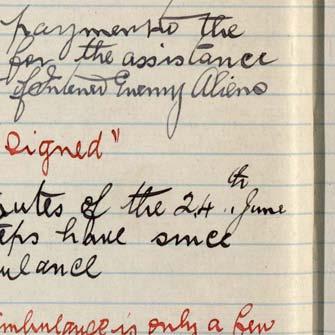 payment to the
for the assistance
of Interned Enemy Aliens
signed"
utes of the 24th June
eps have since
ulance
mbulance is only a few